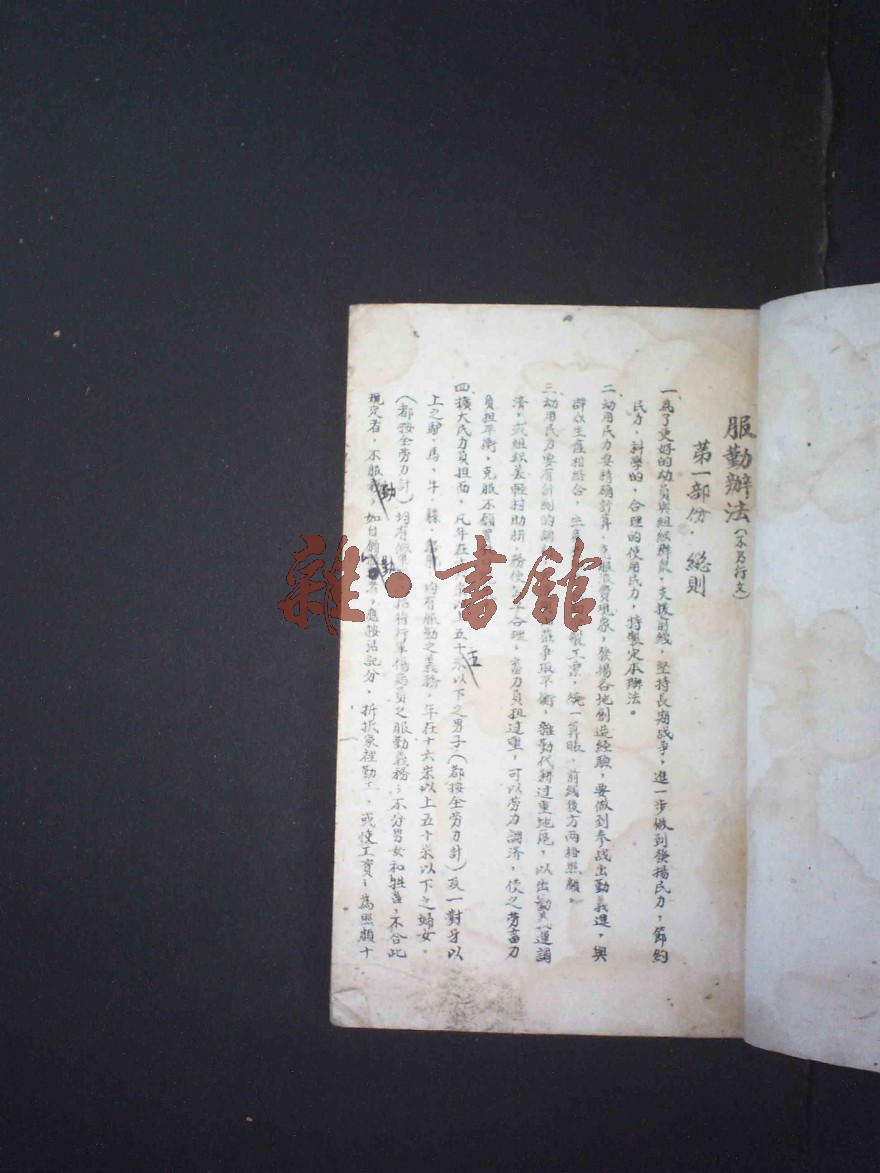 服勤辦法(不另行文)
第一部份·總則
一、為了更好的動員與組織群眾,支援前綫,堅持長期战爭,進一步做到發揚民力,節約
民力,科學的,合理的使用民力,特製定本辦法。
二、动用民力要精確計算,克服浪費現象,發揚各地創造經驗,要做到参战出勤義進,與
群众生產相結合,工票,統一算賬,前綫後方兩措照顧。
三、动用民力要有計劃的爭取平衡,雜勤代耕过重地區,以出勤運調
濟,或組織差輕村助耕,務使合理,畜力負担过重,可以劳力調济,使之劳畜力
負担平衡,克服不願
四、擴大民力負担面,凡年在十六岁以上五十五岁以下之男子(都按全劳力計)及一對牙以
上之驢、馬、牛、騾、均有服勤之義務。年在十六岁以上五十岁以下之婦女,
(都按全劳力計)均有之服勤義務;不分男女和牲畜,不合此
規定者,不服勤,如自者,應按活記分,折抵家裡勤工,或使工資;為照顧十
一
雜·書館